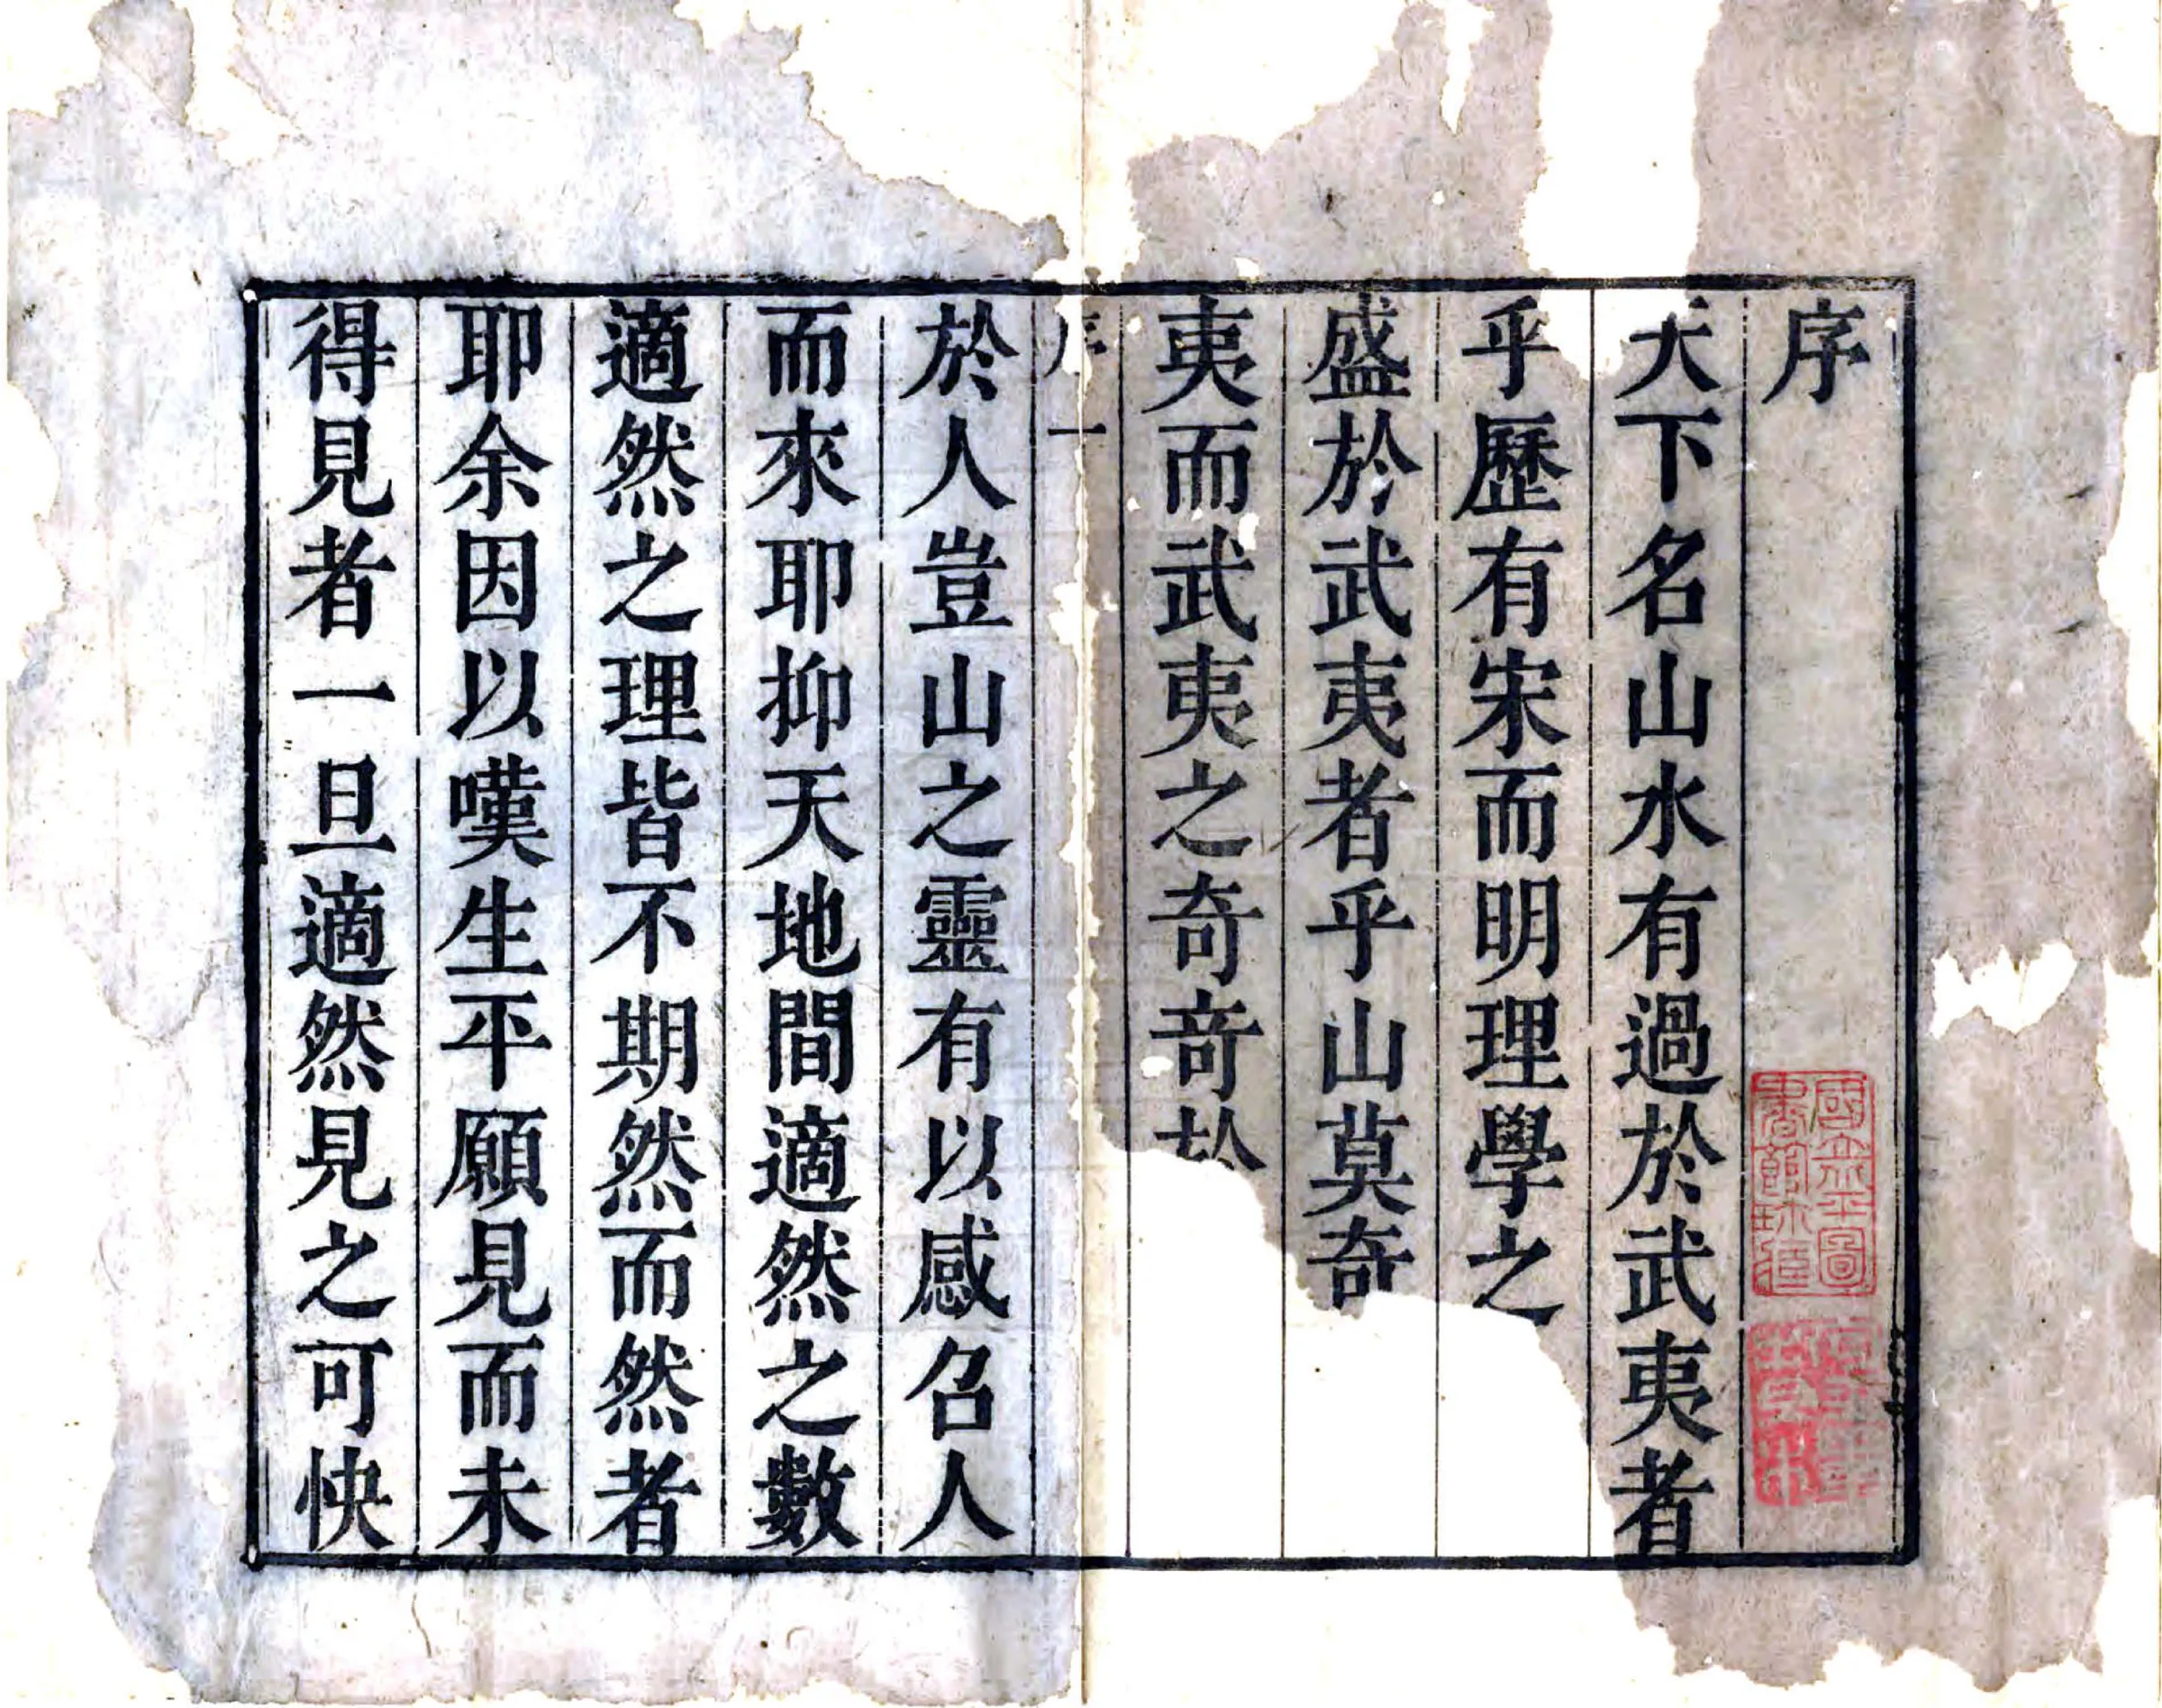 序
天下名山水有過於武夷者
乎歷有宋而明理學之
盛於武夷者乎山莫奇
夷而武夷之奇奇於
序一
於人豈山之靈有以感召人
而來耶抑天地間適然之數
適然之理皆不期然而然者
耶余因以嘆生平願見而未
得見者一旦適然見之可快
國立北平圖
書館珍藏